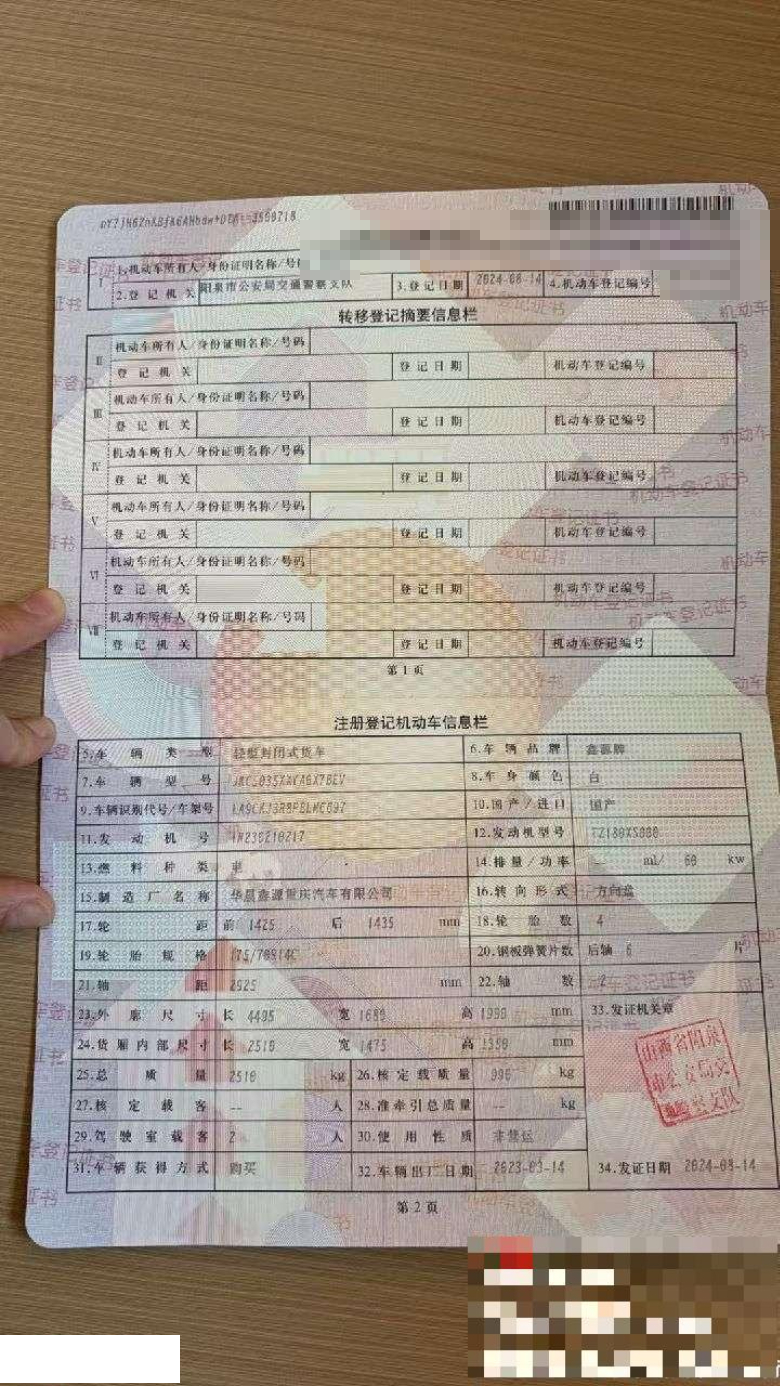 1.机动车所有人/身份证明名称/号码
2.登记机关 阳泉市公安局交通警察支队 3.登记日期 2024-08-14 4.机动车登记编号
转移登记摘要信息栏
Ⅱ 机动车所有人/身份证明名称/号码
登记机关 登记日期 机动车登记编号
Ⅲ 机动车所有人/身份证明名称/号码
登记机关 登记日期 机动车登记编号
Ⅳ 机动车所有人/身份证明名称/号码
登记机关 登记日期 机动车登记编号
Ⅴ 机动车所有人/身份证明名称/号码
登记机关 登记日期 机动车登记编号
Ⅵ 机动车所有人/身份证明名称/号码
登记机关 登记日期 机动车登记编号
Ⅶ 机动车所有人/身份证明名称/号码
登记机关 登记日期 机动车登记编号
第1页
注册登记机动车信息栏
5.车辆类型 轻型封闭式货车 6.车辆品牌 鑫源牌
7.车辆型号 8.车身颜色 白
9.车辆识别代号/车架号 10.国产/进口 国产
11.发动机号 12.发动机型号 TZ180XS000
13.燃料种类 电 14.排量/功率 -- ml/ 60 kw
15.制造厂名称 华晨鑫源重庆汽车有限公司 16.转向形式 方向盘
17.轮距 前 1425 后 1435 mm 18.轮胎数 4
19.轮胎规格 175/70R14C 20.钢板弹簧片数 后轴 6 片
21.轴距 2925 mm 22.轴数 2
23.外廓尺寸 长 4495 宽 1680 高 1990 mm 33.发证机关章
24.货厢内部尺寸 长 2510 宽 1475 高 1350 mm
山西省阳泉
市公安局交
通警察支队
25.总质量 2510 kg 26.核定载质量 kg
27.核定载客 -- 人 28.准牵引总质量 -- kg
29.驾驶室载客 2 人 30.使用性质 非营运
31.车辆获得方式 购买 32.车辆出厂日期 2023-03-14 34.发证日期 2024-08-14
第2页